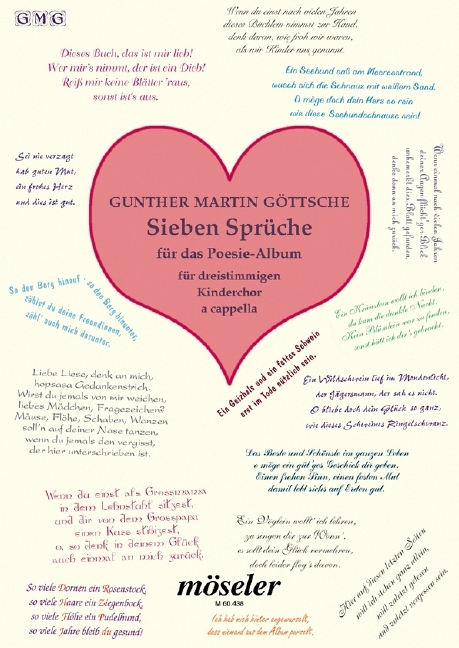 GMG
Wenn du einst nach vielen Jahren
dieses Büchlein nimmst zur Hand,
denk daran, wie froh wir waren,
als wir Kinder uns genannt.
Dieses Buch, das ist mir lieb!
Wer mir's nimmt, der ist ein Dieb!
Reiß mir keine Blätter 'raus,
sonst ist's aus.
Ein Seehund saß am Meeresstrand,
wusch sich die Schnauz mit weißem Sand.
O möge doch dein Herz so rein
wie diese Seehundschnauze sein!
Sei nie verzagt
hab guten Mut,
ein frohes Herz
und dies ist gut.
Wenn einmal nach vielen Jahren
deiner Augen flücht'ger Blick
unbemerkt dies Blatt gefunden,
denke dann an mich zurück.
GUNTHER MARTIN GÖTTSCHE
Sieben Sprüche
für das Poesie-Album
für dreistimmigen
Kinderchor
a cappella
So den Berg hinauf - so den Berg hinunter,
zählst du deine Freundinnen,
zähl' auch mich darunter.
Ein Kränzlein wollt ich binden,
da kam die dunkle Nacht.
Kein Blümlein war zu finden,
sonst hätt ich dir's gebracht.
Ein Geizhals und ein fettes Schwein
erst im Tode nützlich sein.
Liebe Liese, denk an mich,
hopsasa Gedankenstrich.
Wirst du jemals von mir weichen,
liebes Mädchen, Fragezeichen?
Mäuse, Flöhe, Schaben, Wanzen
soll'n auf deiner Nase tanzen,
wenn du jemals den vergisst,
der hier unterschrieben ist.
Ein Wildschwein lief im Mondenlicht,
der Jägersmann, der sah es nicht.
O bliebe doch dein Glück so ganz,
wie dieses Schweines Ringelschwanz.
Das Beste und Schönste im ganzen Leben
o möge ein güt'ges Geschick dir geben.
Einen frohen Sinn, einen festen Mut
damit lebt sichs auf Erden gut.
Wenn du einst als Grossmama
in dem Lehnstuhl sitzest,
und dir von dem Grosspapa
einen Kuss stibitzest,
so denk in deinem Glück
auch einmal an mich zurück.
Ein Vöglein wollt' ich lehren,
zu singen dir zur Wonn',
es sollt dein Glück vermehren,
doch leider flog's davon.
Hier auf diesen letzten Seiten
will ich daher ganz allein,
will zuletzt gelesen
und zuletzt vergessen sein.
So viele Dornen ein Rosenstock,
so viele Haare ein Ziegenbock,
so viele Flöhe ein Pudelhund,
so viele Jahre bleib du gesund!
möseler
M 60.438
Ich hab mich hinten angewurzelt,
dass niemand aus dem Album purzelt.